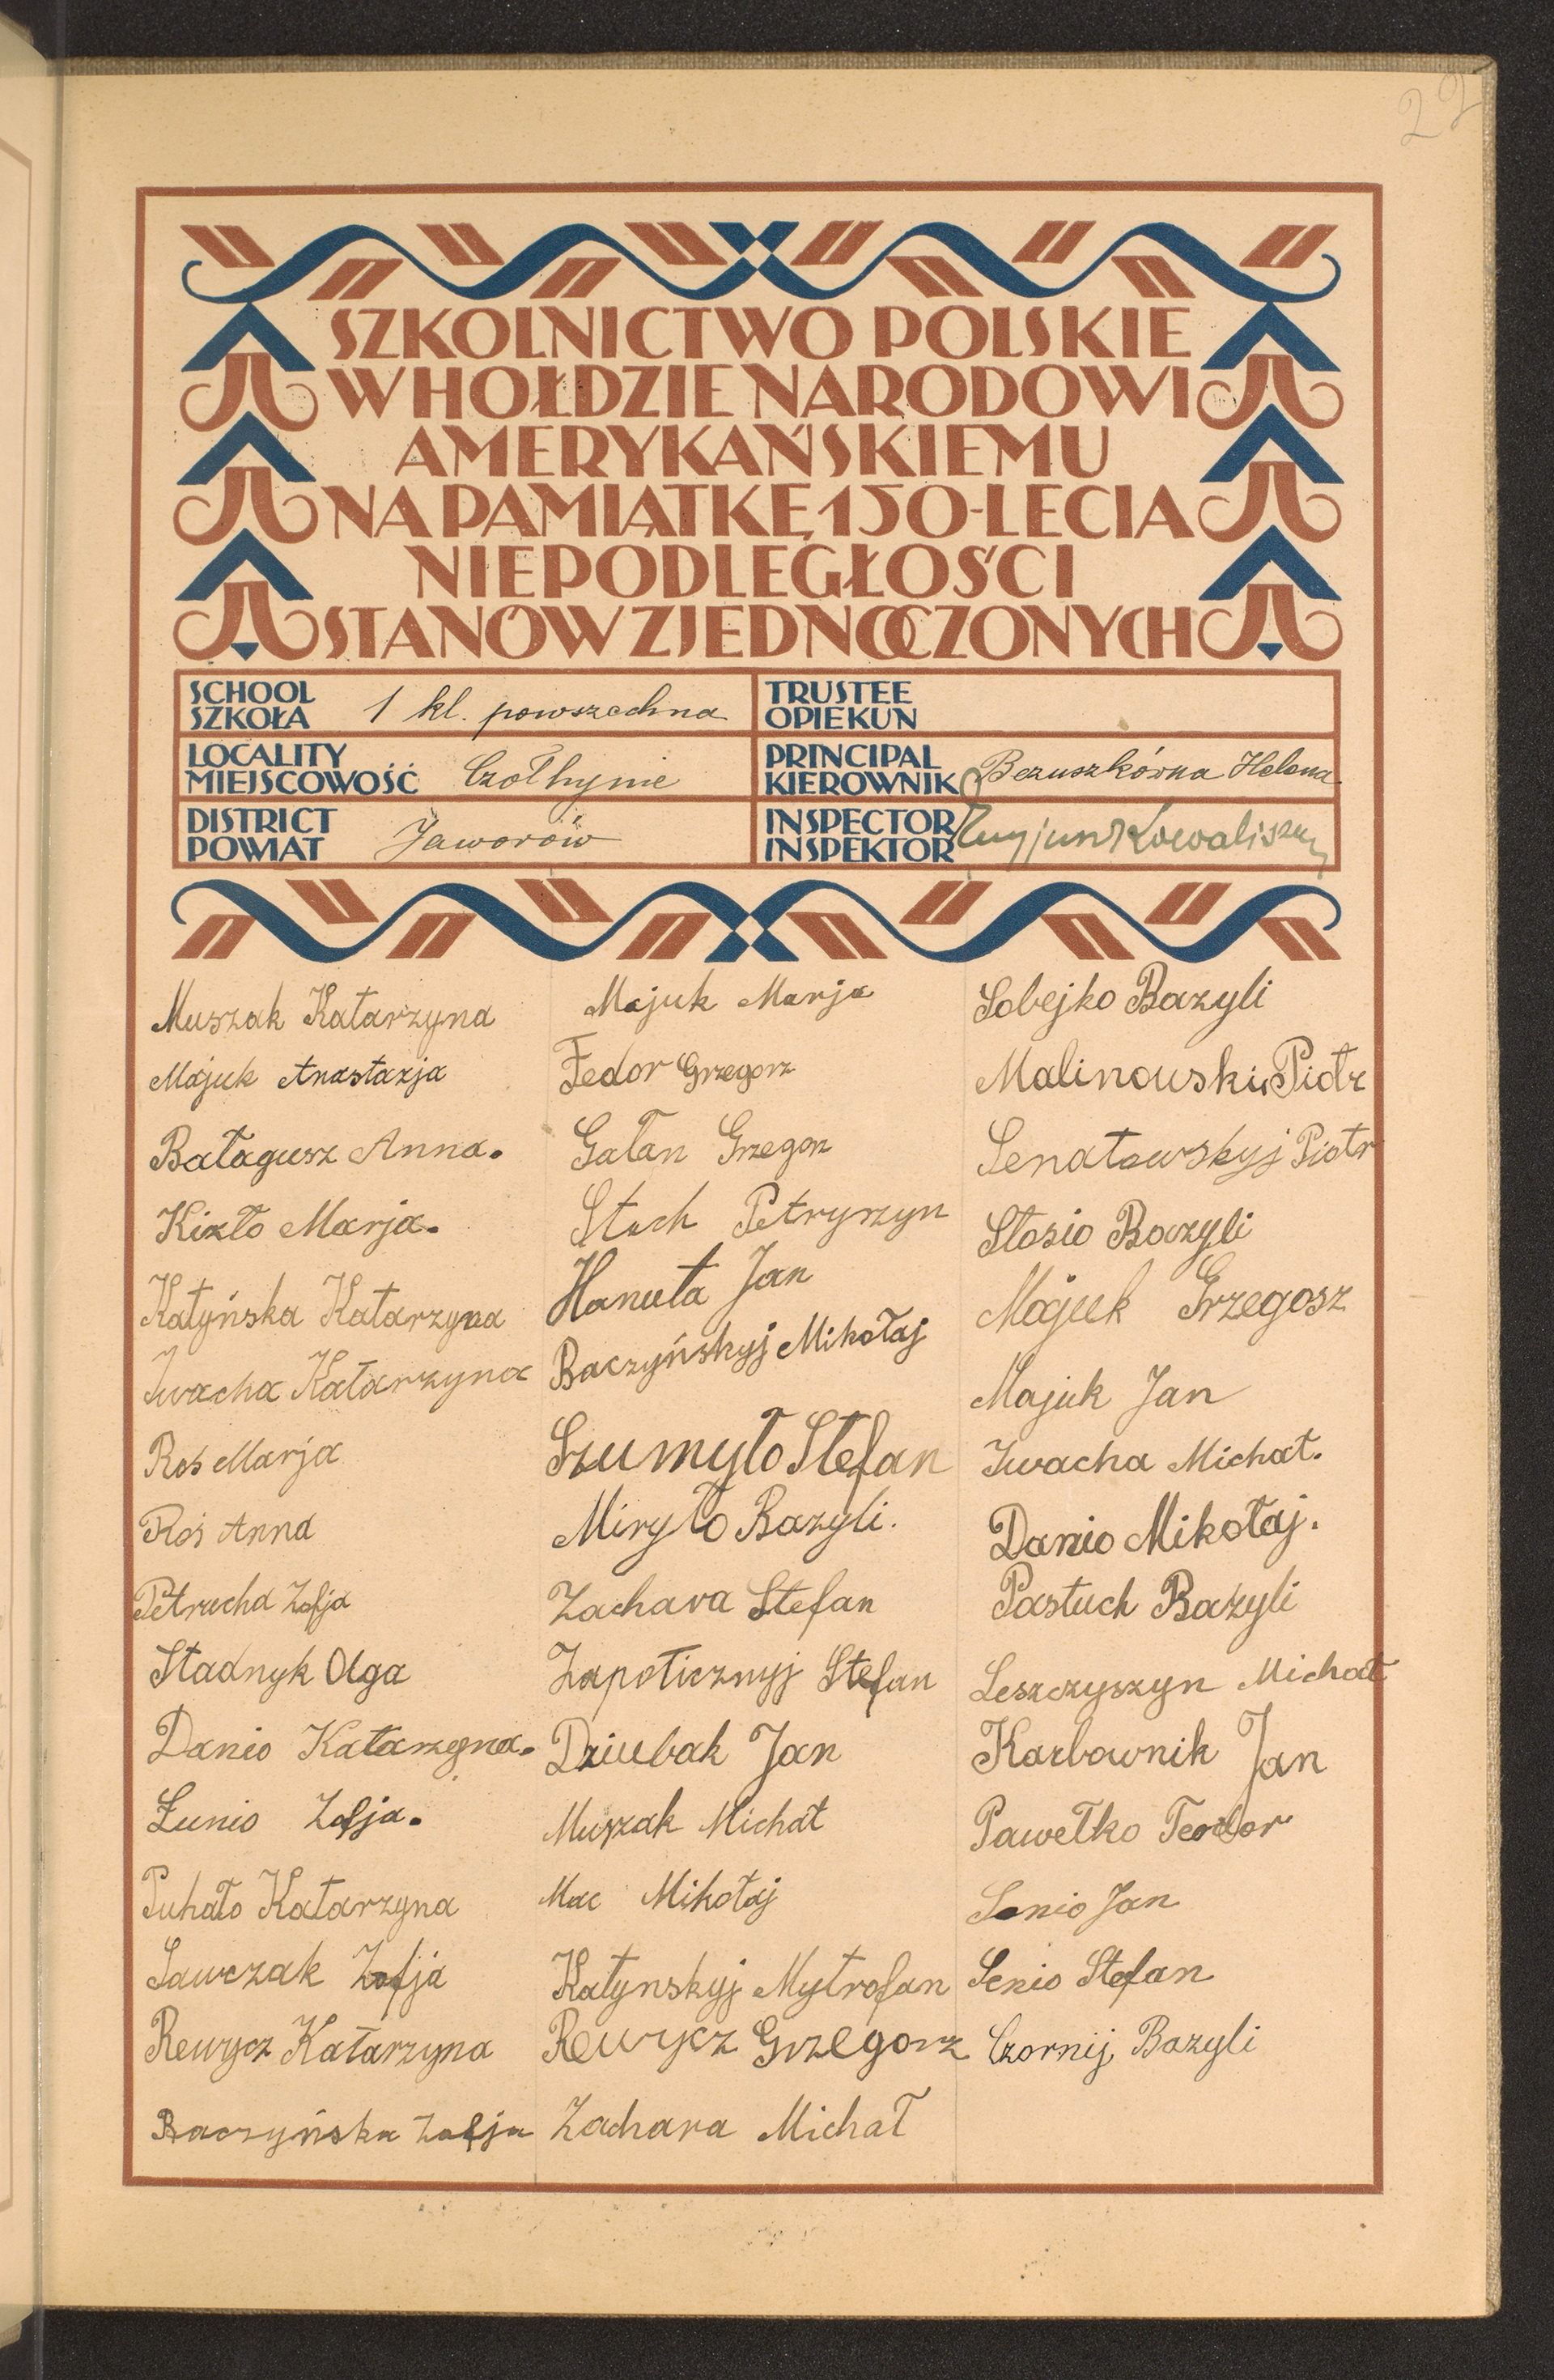 22
SZKOLNICTWO POLSKIE
W HOŁDZIE NARODOWI
AMERYKAŃSKIEMU
NA PAMIĄTKĘ 150-LECIA
NIEPODLEGŁOŚCI
STANÓW ZJEDNOCZONYCH
SCHOOL
SZKOŁA 1 kl. powszechna
TRUSTEE
OPIEKUN
LOCALITY
MIEJSCOWOŚĆ Czołhynie
PRINCIPAL
KIEROWNIK Bezuszkówna Helena
DISTRICT
POWIAT Jaworów
INSPECTOR
INSPEKTOR
Muszak Katarzyna
Majuk Anastazja
Bałagusz Anna.
Kizło Marja.
Kałyńska Katarzyna
Iwacha Katarzyna
Roś Marja
Roś Anna
Petrucha Zofja
Stadnyk Olga
Danio Katarzyna.
Łunio Zofja.
Puhało Katarzyna
Sawczak Zofja
Rewycz Katarzyna
Baczyńska Zofja
Majuk Marja
Fedor Grzegorz
Gałan Grzegorz
Stach Petryszyn
Hanuła Jan
Baczyńskyj Mikołaj
Szumyło Stefan
Miryło Bazyli.
Zachara Stefan
Zapoticznyj Stefan
Dziubak Jan
Muszak Michał
Mac Mikołaj
Kałynskyj Mytrofan
Rewycz Grzegorz
Zachara Michał
Sobejko Bazyli
Malinowskij Piotr
Senatowskyj Piotr
Stasio Bazyli
Majuk Grzegosz
Majuk Jan
Iwacha Michał.
Danio Mikołaj.
Pastuch Bazyli
Leszczyszyn Michał
Karbownik Jan
Pawełko Teodor
Senio Jan
Senio Stefan
Czornij Bazyli